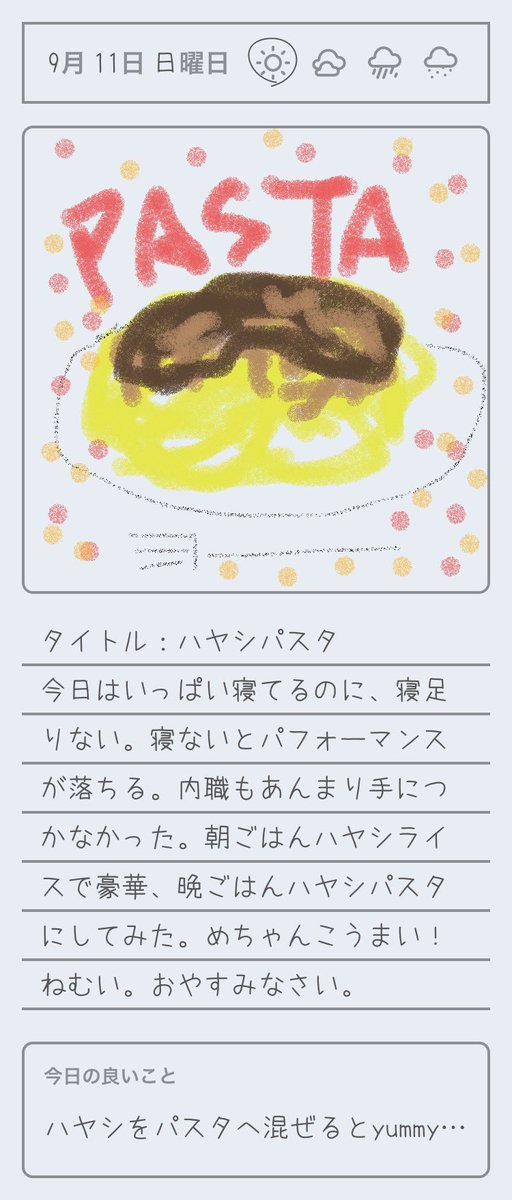 9月 11日 日曜日
PASTA
タイトル：ハヤシパスタ
今日はいっぱい寝てるのに、寝足
りない。寝ないとパフォーマンス
が落ちる。内職もあんまり手につ
かなかった。朝ごはんハヤシライ
スで豪華、晩ごはんハヤシパスタ
にしてみた。めちゃんこうまい！
ねむい。おやすみなさい。
今日の良いこと
ハヤシをパスタへ混ぜるとyummy…